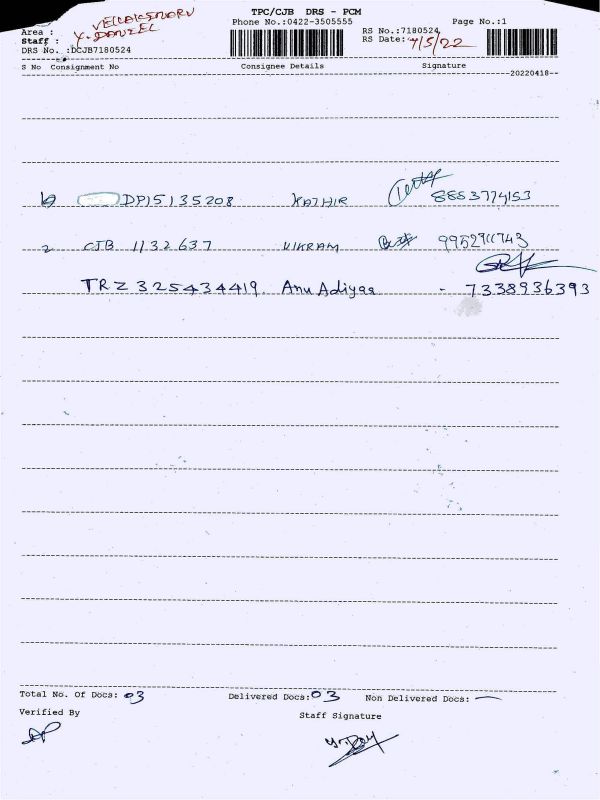 TPC/CJB DRS - PCM
Area : VELLAKENARU Phone No.:0422-3505555 Page No.:1
Staff : Y. DANIEL RS No.:7180524
RS Date: 7/5/22
DRS No. :DCJB7180524
S No Consignment No Consignee Details Signature
--20220418--
DP15135208 KATHIR 8853774153
2 CJB 1132637 VIKRAM 9952911743
TRZ 325434419. Anu Adiyaa - 7338936393
Total No. Of Docs: 03 Delivered Docs: 03 Non Delivered Docs: —
Verified By Staff Signature